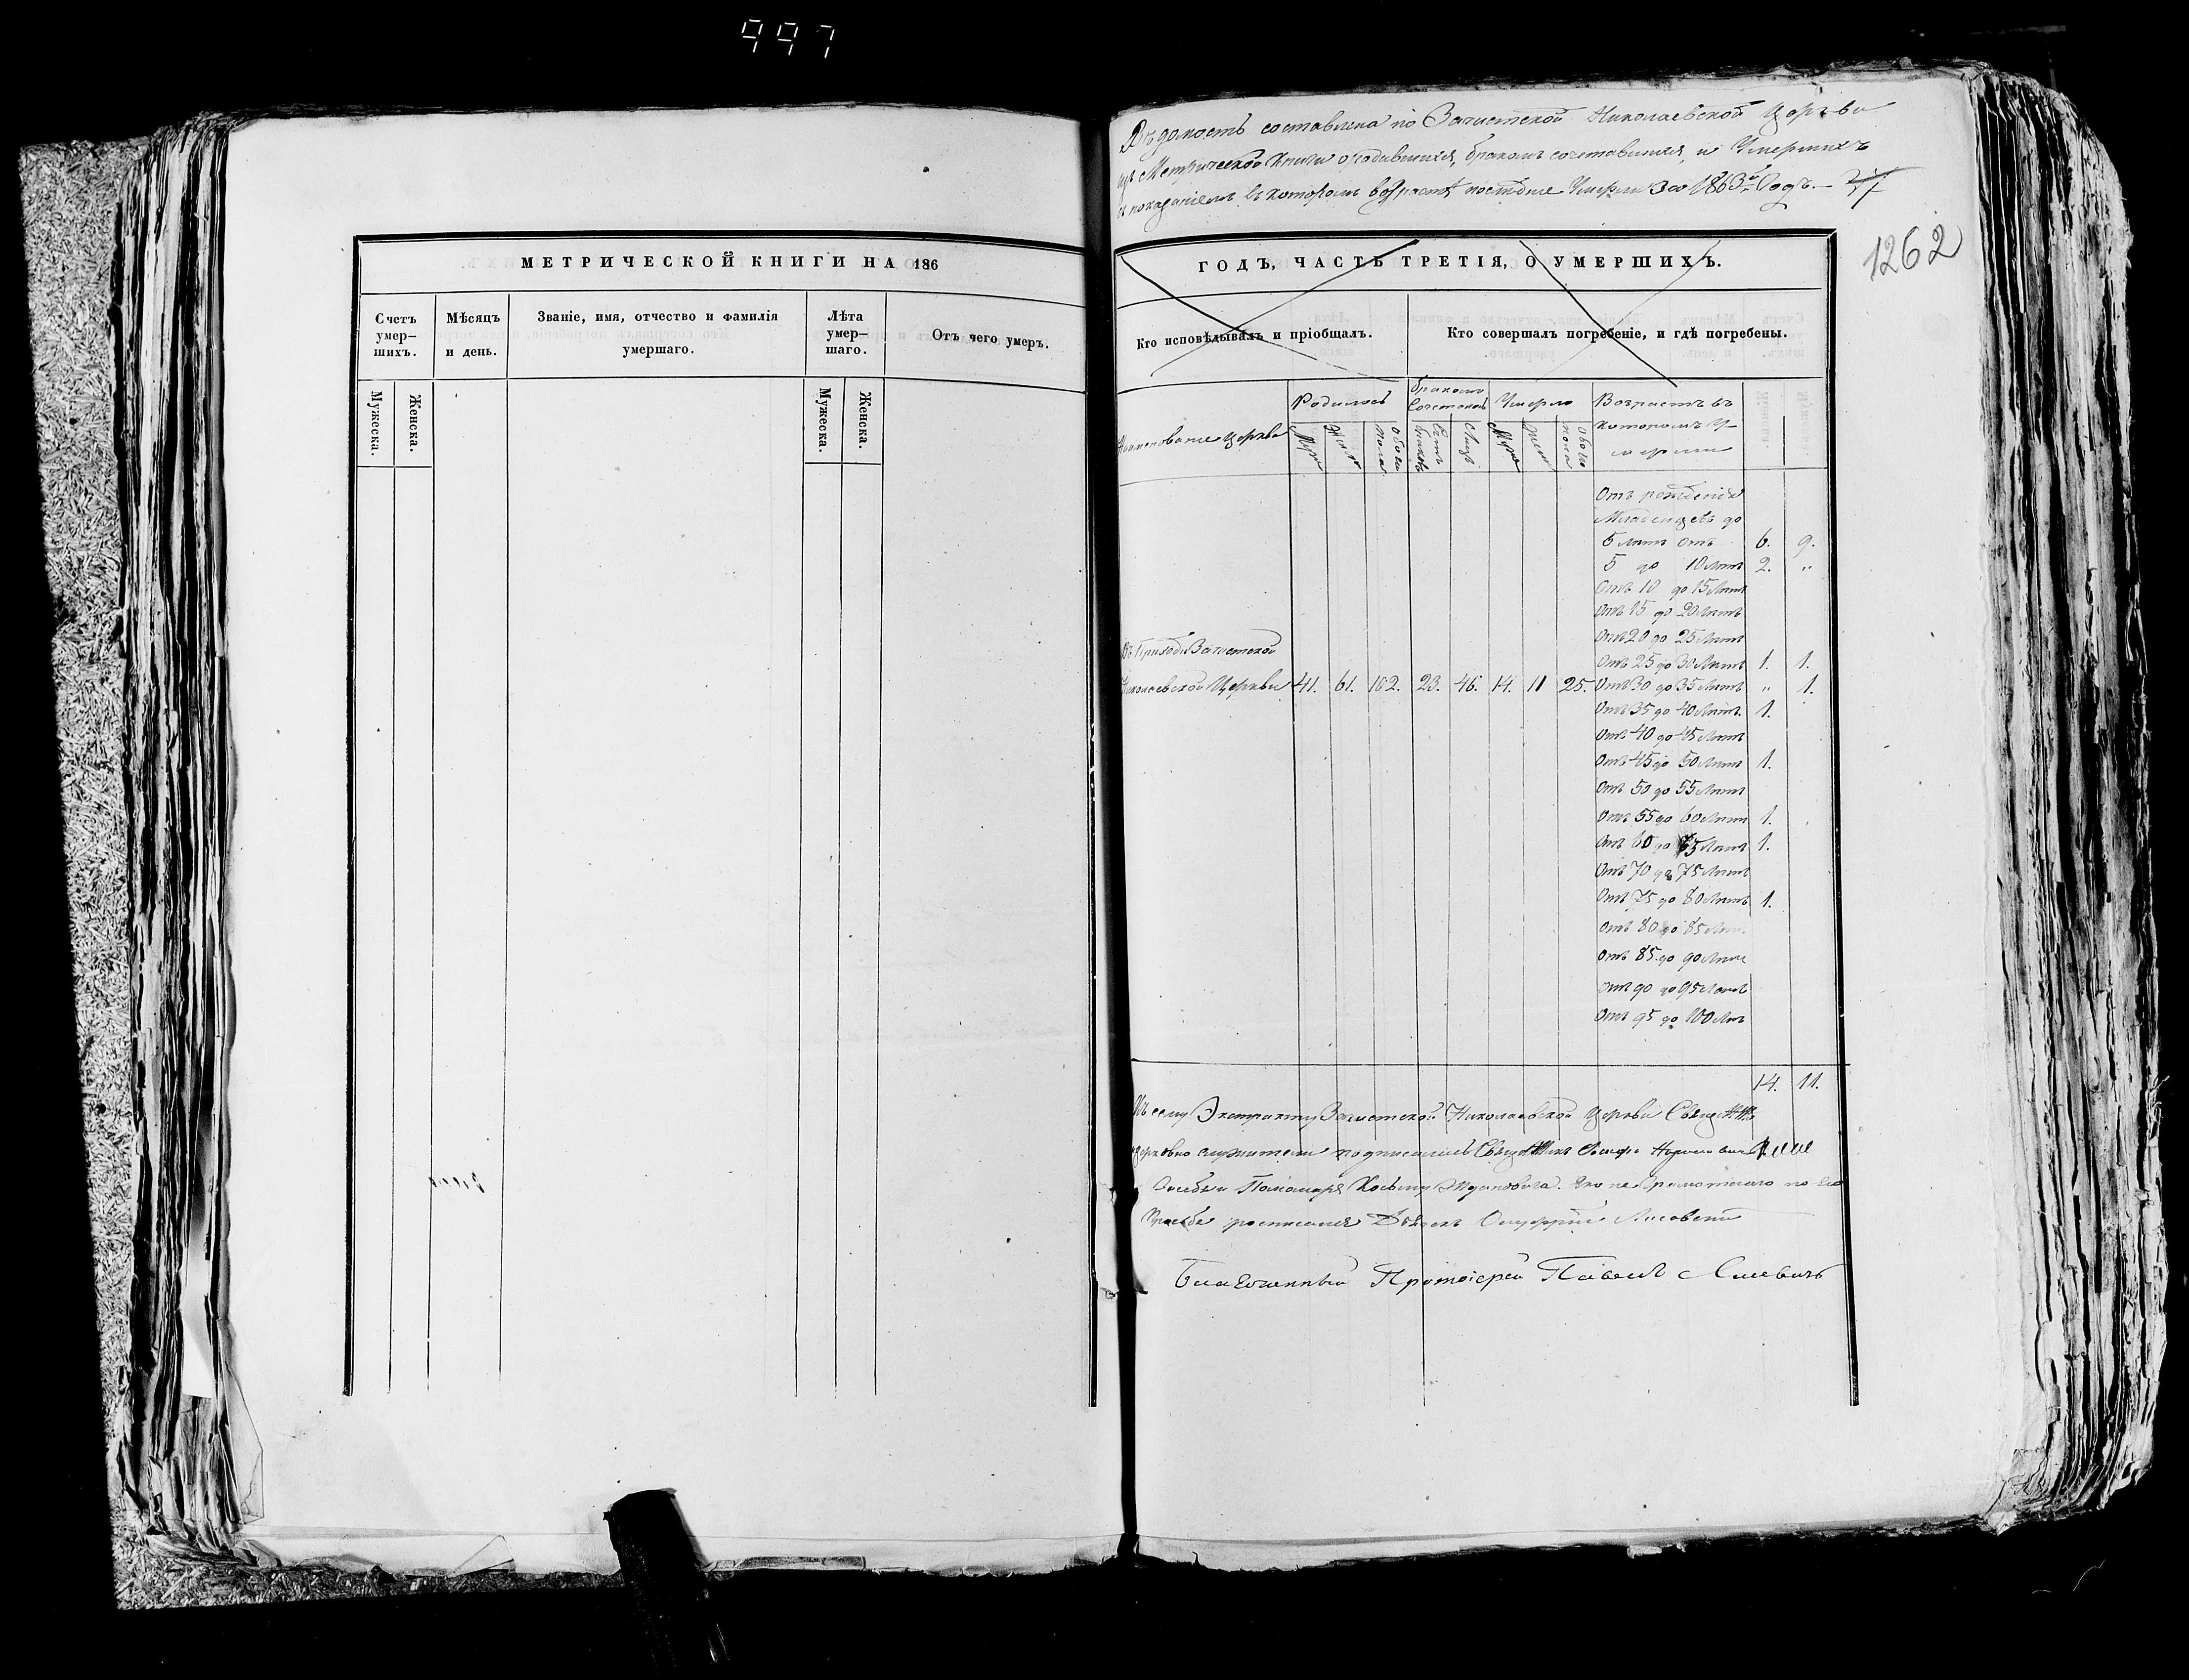 997
МЕТРИЧЕСКОЙ КНИГИ НА 186
Счетъ умер-шихъ.
Мѣсяцъ и день.
Званіе, имя, отчество и фамилія умершаго.
Лѣта умер-шаго.
Отъ чего умеръ.
Мужеска.
Женска.
Мужеска.
Женска.
Вѣдомость составлена по Зачистской Николаевской Церкви
изъ Метрической Книги о родившихся, бракомъ сочетавшихся, и Умершихъ
съ показаніемъ въ которомъ возрастѣ послѣдніе Умерли за 1863й Годъ.
1262
ГОДЪ, ЧАСТЬ ТРЕТІЯ, О УМЕРШИХЪ.
Кто исповѣдывалъ и пріобщалъ.
Кто совершалъ погребеніе, и гдѣ погребены.
Наименованіе Церкви
Родилось
бракомъ Сочеталось
Умерло
Возрастъ въ
которомъ У-
мерли
Муж
Жен
обоего пола
Лицъ
Муж
Жен
обоего пола
Отъ рожденія
Младенцевъ до
5 Лѣтъ Отъ 6. 9.
5 до 10 Лѣтъ 2. "
Отъ 10 до 15 Лѣтъ
Отъ 15 до 20 Лѣтъ
Отъ 20 до 25 Лѣтъ
Въ Приходѣ Зачистской
Отъ 25 до 30 Лѣтъ 1. 1.
Николаевской Церкви 41. 61. 102. 23. 46. 14. 11 25. Отъ 30 до 35 Лѣтъ " 1.
Отъ 35 до 40 Лѣтъ 1.
Отъ 40 до 45 Лѣтъ
Отъ 45 до 50 Лѣтъ 1.
Отъ 50 до 55 Лѣтъ
Отъ 55 до 60 Лѣтъ 1.
Отъ 60 до 65 Лѣтъ 1.
Отъ 70 до 75 Лѣтъ
Отъ 75 до 80 Лѣтъ 1.
Отъ 80 до 85 Лѣтъ
Отъ 85 до 90 Лѣтъ
Отъ 90 до 95 Лѣтъ
Отъ 95 до 100 Лѣтъ
14. 11.
Къ сему Экстракту Зачистской Николаевской Церкви Священно
церковно служители подписались Священникъ
Пономаря Косьмы Ждановича. Его не Грамотнаго по его
Прозбе росписался Дьячекъ Онуфрій Лисовскій
Благочинный Протоіерей Павелъ